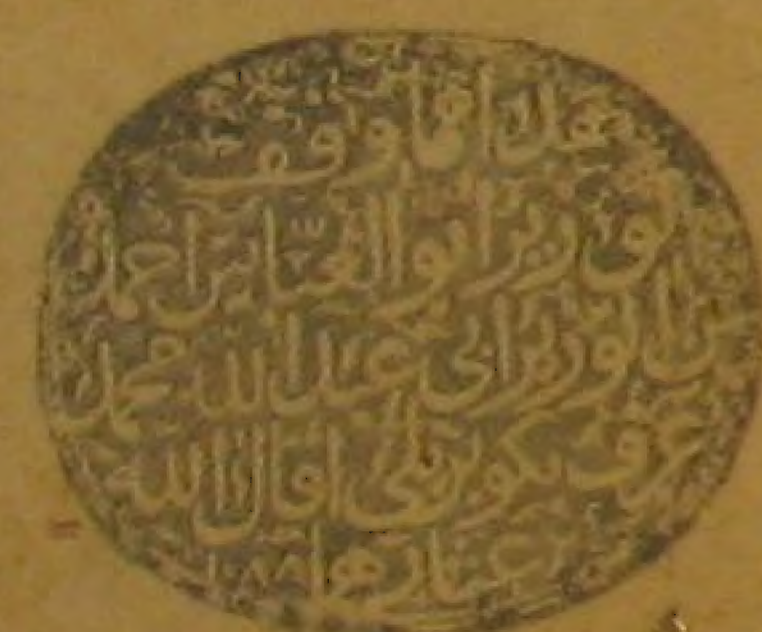 هذا ما وقف
الوزير ابو العباس احمد
بن الوزير ابي عبد الله محمد
عرف بكوپريلي اقال الله
عثارهما ١٠٨٨